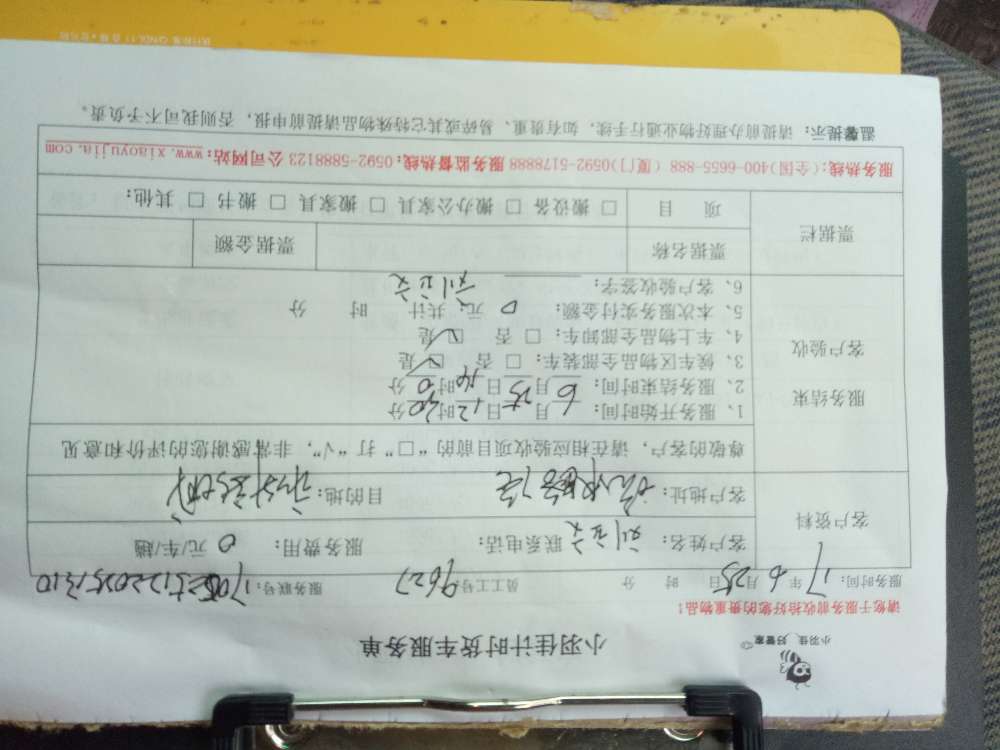 小羽佳 好管家
小羽佳计时货车服务单
请您于服务前收拾好您的贵重物品！
服务时间：17 年 6 月 25 日 时 分 员工工号：9627 服务联号：
客户资料
客户姓名： 联系电话： 服务费用：0 元/车/趟
客户地址： 目的地：
尊敬的客户，请在相应验收项目前的“□”打“√”，非常感谢您的评价和意见
服务结束
客户验收
1、服务开始时间：6 月 25 日 12 时 30 分
2、服务结束时间： 月 日 时 分
3、候车区物品全部装车：□ 否 ☑ 是
4、车上物品全部卸车：□ 否 ☑ 是
5、本次服务实付金额：0 元；共计： 时 分
6、客户验收签字：
票据栏
票据名称 票据金额
项 目 □ 搬设备 □ 搬办公家具 □ 搬家具 □ 搬书 □ 其他：
服务热线：(全国)400-6655-888 (厦门)0592-5178888 服务监督热线：0592-5888123 公司网站：www.xiaoyujia.com
温馨提示：请提前办理好物业通行手续，如有贵重、易碎或其它特殊物品请提前申报，否则我司不予负责。